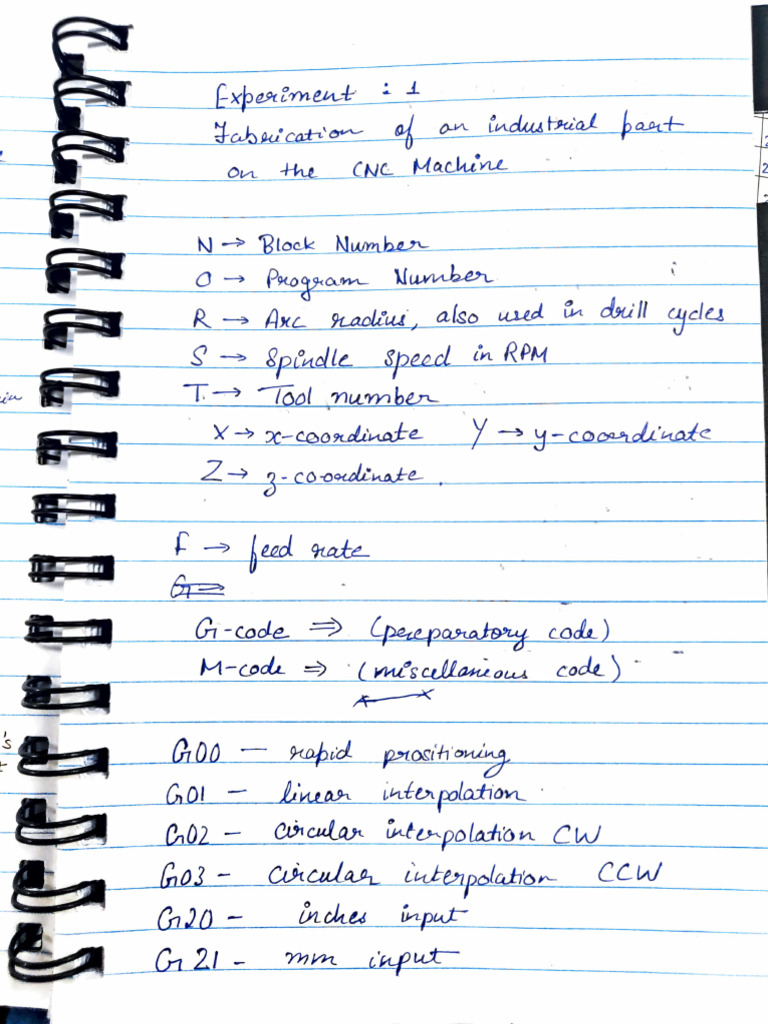 Experiment : 1
Fabrication of an industrial part
on the CNC Machine
N → Block Number
O → Program Number
R → Arc radius, also used in drill cycles
S → Spindle speed in RPM
T. → Tool number
X → x-coordinate Y → y-cooordinate
Z → z-co-ordinate.
F → feed rate
G ⇒
G-code ⇒ (preparatory code)
M-code ⇒ (miscellaneous code)
G00 — rapid positioning
G01 - linear interpolation
G02 - circular interpolation CW
G03 - circular interpolation CCW
G20 - inches input
G21 - mm input